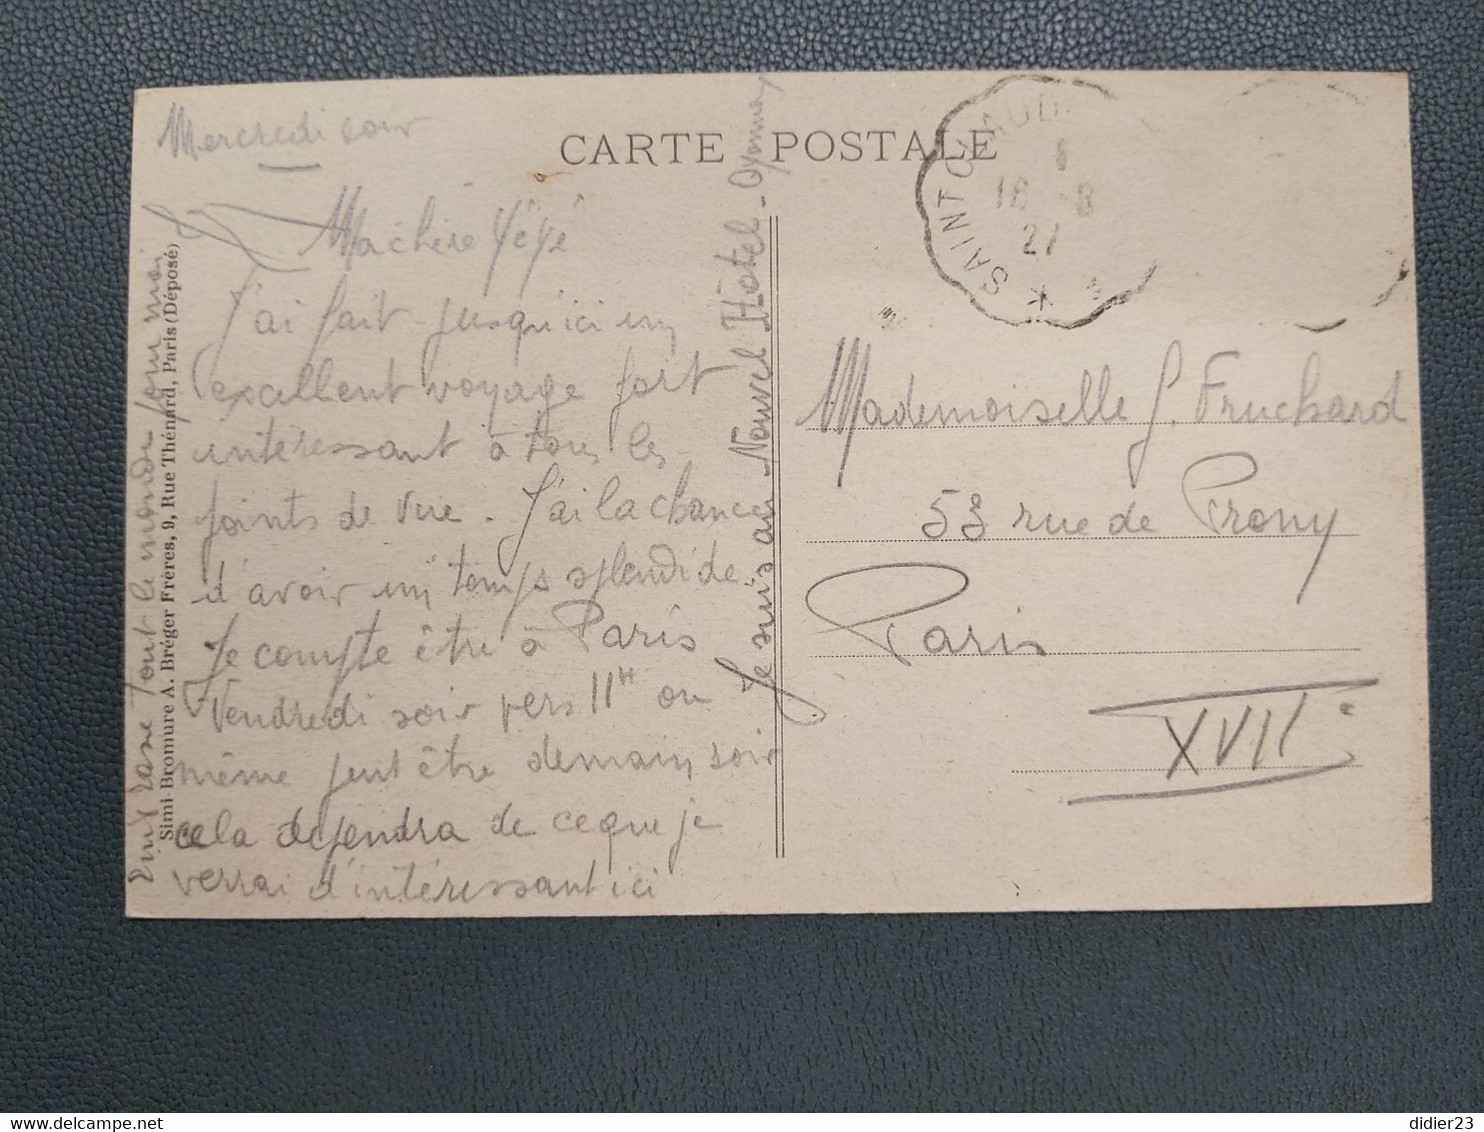 Mercredi soir
CARTE POSTALE
SAINT CLAUD
16 -8
27
Ma chère Yéyé
J'ai fait jusqu'ici un
excellent voyage fort
intéressant à tous les
points de vue. J'ai la chance
d'avoir un temps splendide.
Je compte être à Paris
Vendredi soir vers 11H ou
même peut être demain soir
cela dépendra de ce que je
verrai d'intéressant ici
Je suis au Nouvel Hôtel - Oyonnax
tout le monde pour moi
Simi-Bromure A. Bréger Frères, 9, Rue Thénard, Paris (Déposé)
Mademoiselle J. Fruchard
53 rue de Prony
Paris
XVIIe
didier23